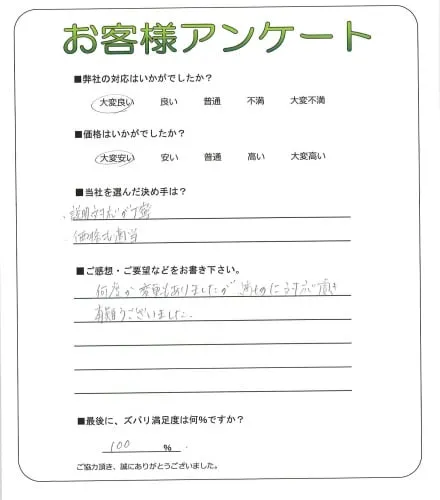 お客様アンケート
■弊社の対応はいかがでしたか?
大変良い 良い 普通 不満 大変不満
■価格はいかがでしたか?
大変安い 安い 普通 高い 大変高い
■当社を選んだ決め手は?
・説明対応が丁寧
・価格も適当
■ご感想・ご要望などをお書き下さい。
何度か変更もありましたが 対応頂き
有難うございました。
■最後に、ズバリ満足度は何%ですか?
100 %
ご協力頂き、誠にありがとうございました。